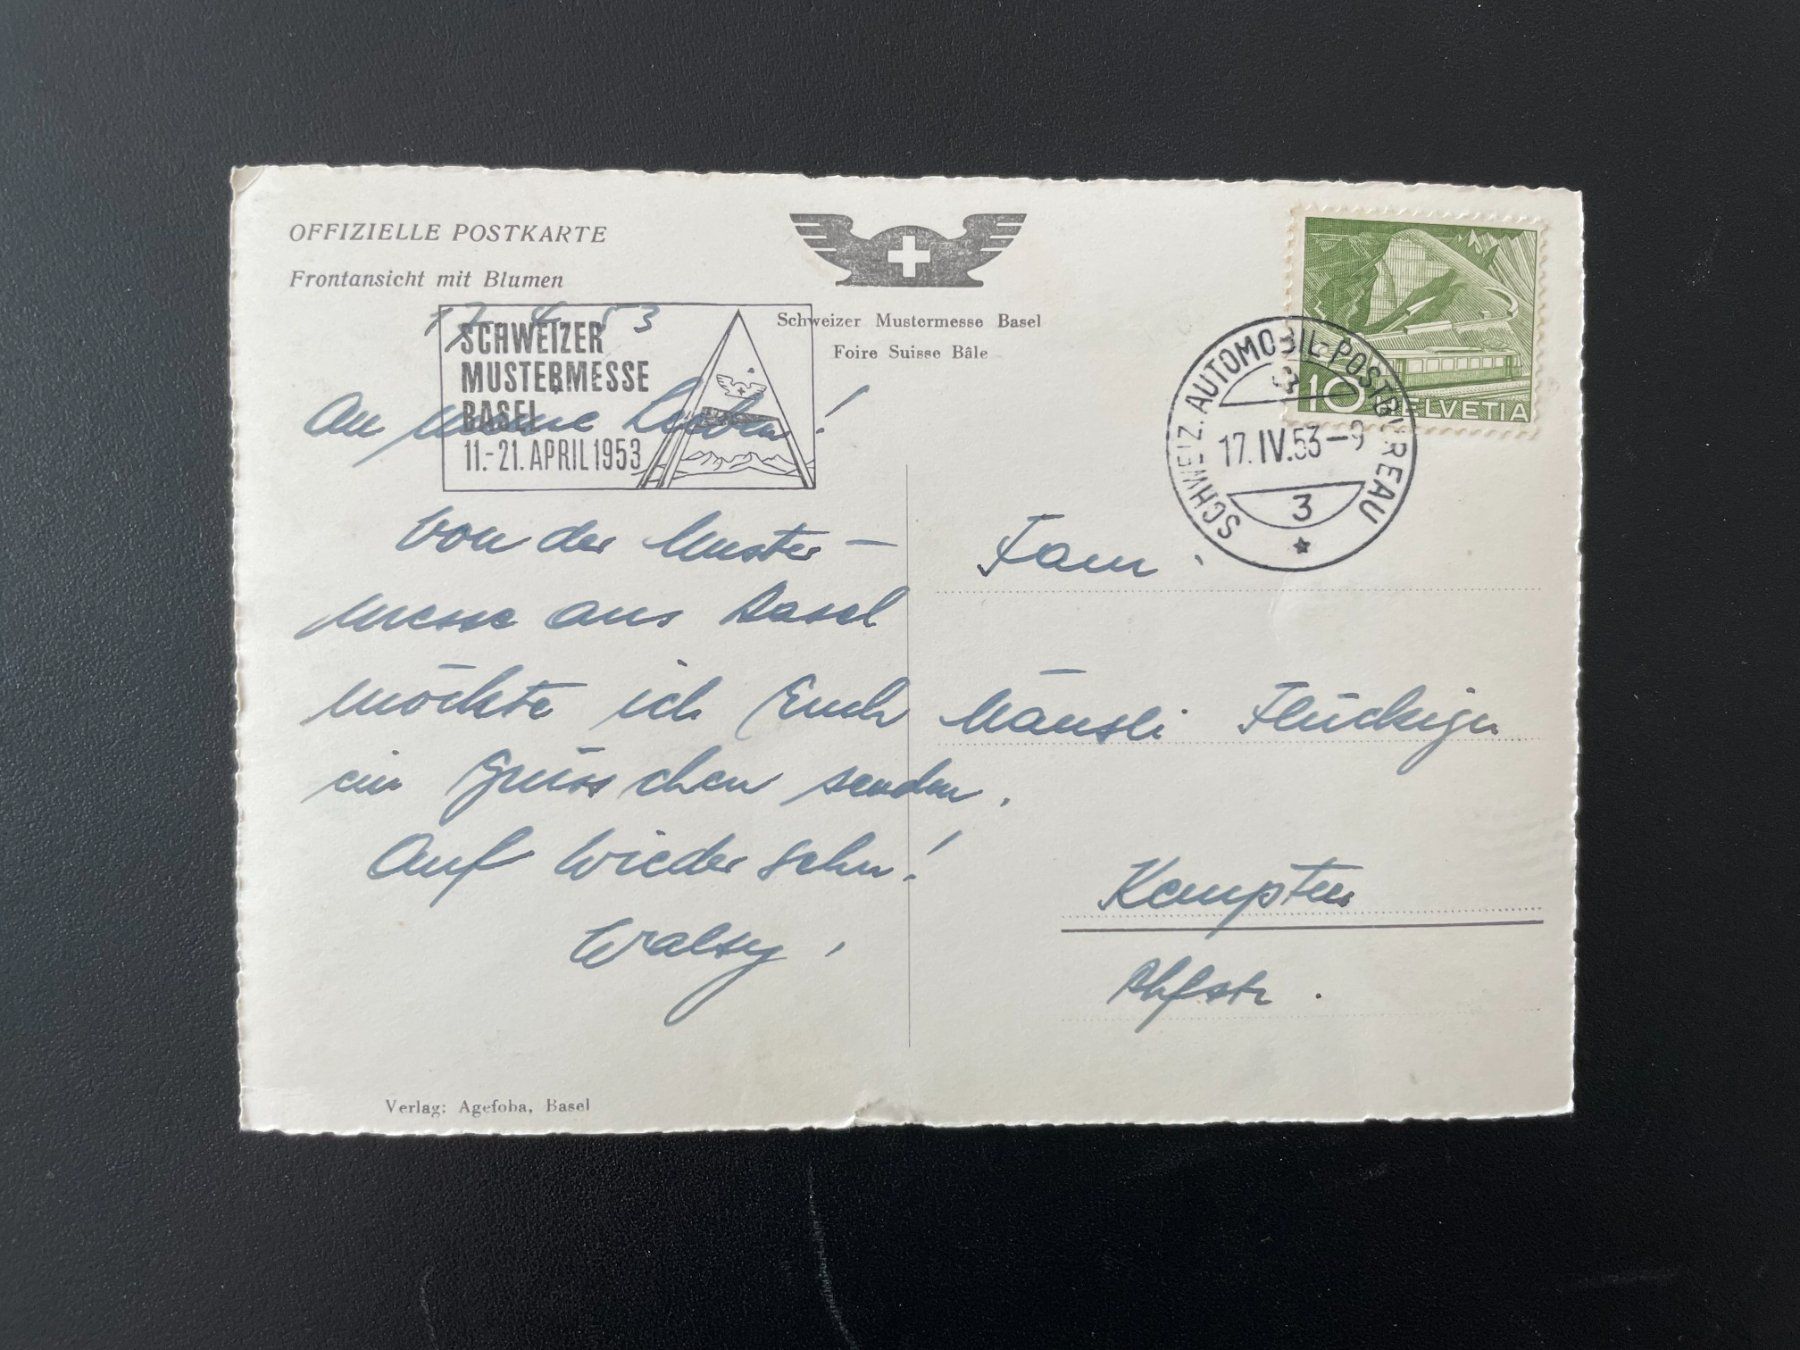 OFFIZIELLE POSTKARTE
Frontansicht mit Blumen
17. 4. 53
SCHWEIZER
MUSTERMESSE
BASEL
11.-21. APRIL 1953
Schweizer Mustermesse Basel
Foire Suisse Bâle
10 HELVETIA
SCHWEIZ. AUTOMOBIL-POSTBUREAU
17.IV.53-9
3
An meine Lieben!
Von der Muster-
messe aus Basel
möchte ich Euch
ein Grüsschen senden.
Auf Wiedersehn!
Fam.
Flückiger
Kempten
Verlag: Agefoba, Basel